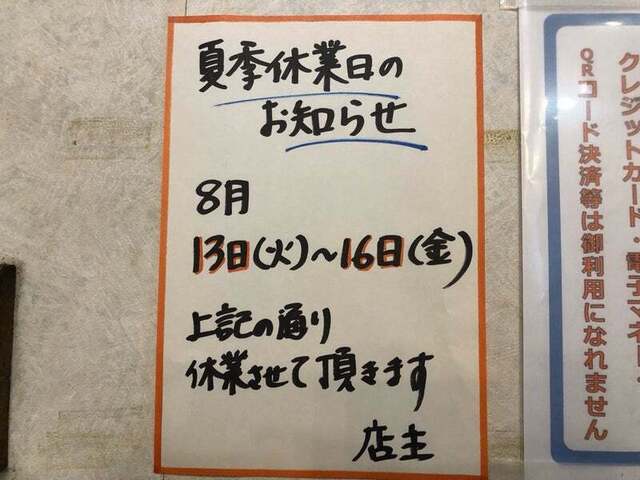 夏季休業日の
お知らせ
8月
13日(火)～16日(金)
上記の通り
休業させて頂きます
店主
クレジットカード・電子マネー・
QRコード決済等は御利用になれません